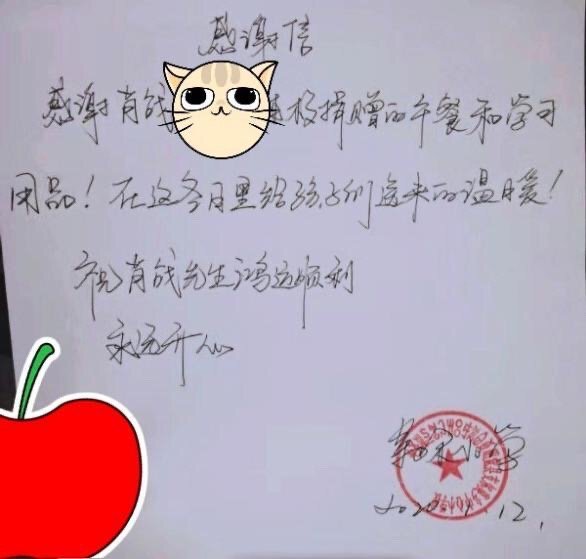 感谢信
感谢肖战 极捐赠的午餐和学习
用品！在这冬日里给孩子们送来的温暖！
祝肖战先生鸿运顺利
永远开心
小学
12.